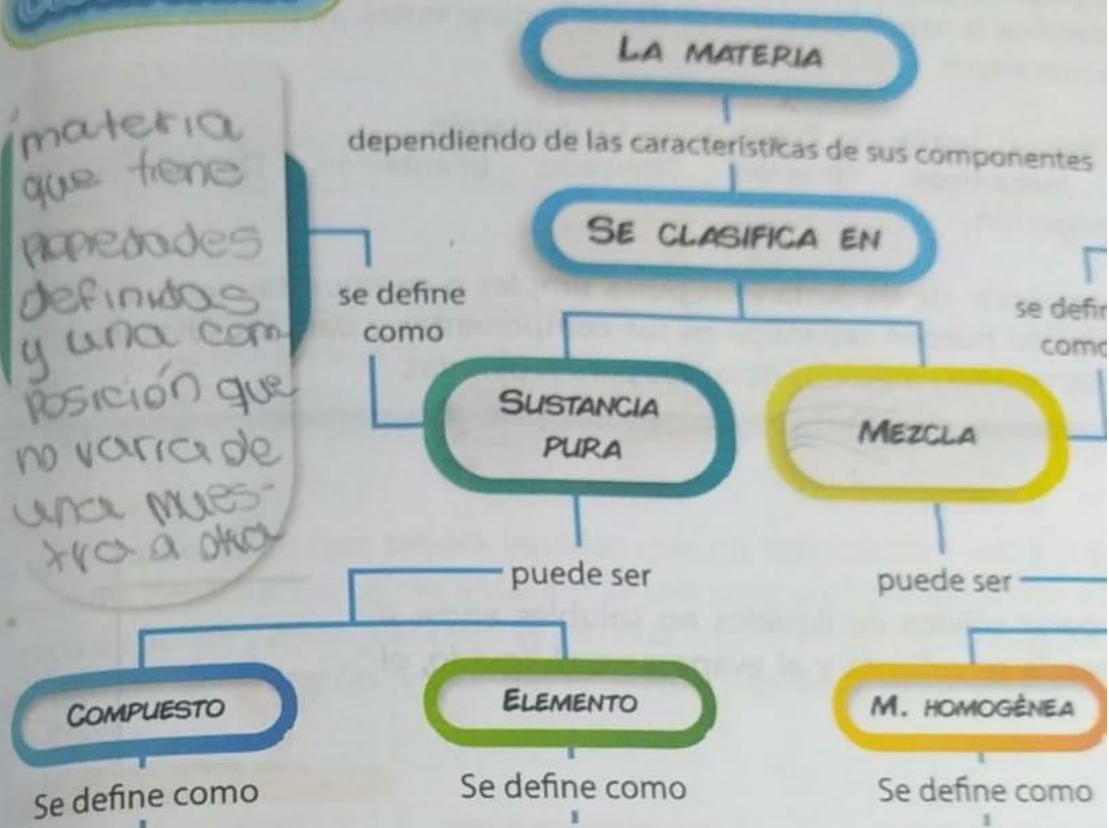 LA MATERIA
dependiendo de las características de sus componentes
SE CLASIFICA EN
materia
que tiene
propiedades
definidas
y una com
posición que
no varia de
una mues-
tra a otra
se define
como
se defin
como
SUSTANCIA
PURA
MEZCLA
puede ser
puede ser
COMPUESTO
ELEMENTO
M. HOMOGÉNEA
Se define como
Se define como
Se define como